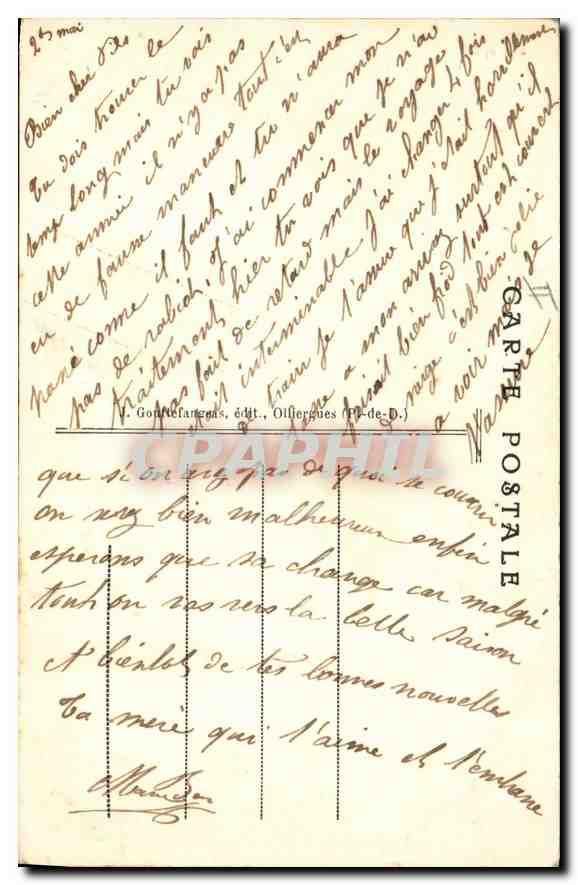 2 mai
Bien cher Fils
Tu dois trouver le
temp long mais tu vois
cette année il n'y a pas
eu de fausse manœuvre tout c'est
passé comme il faut et tu n'aura
pas de rabiot, j'ai commencer mon
traitement hier tu vois que je n'ai
pas fait de retard mais le voyage
était interminable j'ai changer 4 fois
de train je t'assure que j'était
a mon arrivée surtout qu'il
faisait bien froid tout est couvert
de neige c'est bien jolie
a voir mais de
J. Gouttefangeas, édit., Olliergues (P.-de-D.)
CARTE POSTALE
CARPHIL
que si on avez pas de quoi se couvrir
on serez bien malheureux enfin
esperons que sa change car malgré
tout on vas vers la belle saison
A bientot de tes bonnes nouvelles
Ta meré qui t'aime et t'embrasse